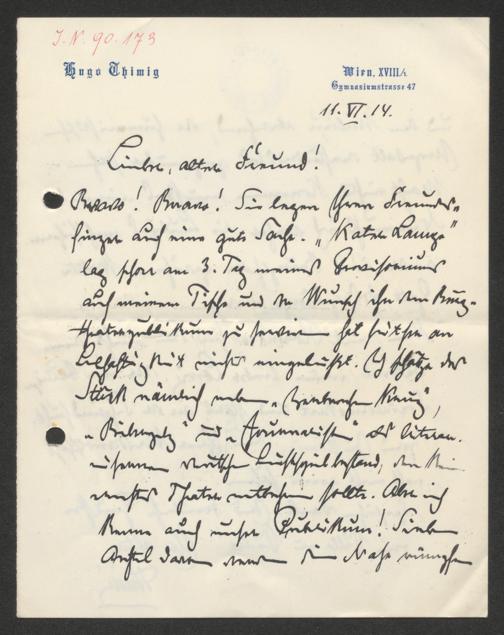 J.N. 90.173
Hugo Thimig
Wien, XVIII/1.
Gymnasiumstrasse 47
11. VI. 14.
Lieber, alter Freund!
Bravo! Bravo! Sie legen Ihren Freundes-
finger auf eine gute Sache. „Kater Lampe"
lag schon am 3. Tag meines Provisoriums
auf meinem Tische und der Wunsch ihn dem Burg-
theaterpublikum zu servieren hat seither an
Lebhaftigkeit nichts eingebüßt. Ich schätze das
Stück nämlich neben „Zerbrochen Krug",
„Biberpelz" und „Journalisten" als literar.
eisernen deutschen Lustspielbestand, den kein
ernstes Theater entbehren sollte. Aber ich
kenne auch unser Publikum! Sieben
Achtel davon werden die Nase rümpfen